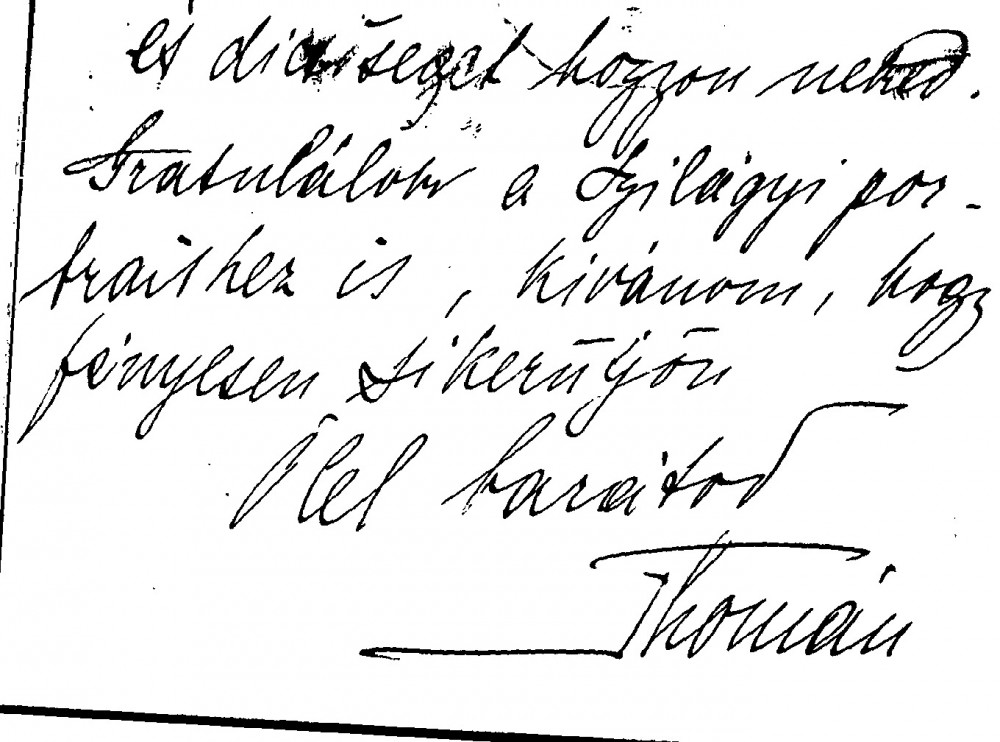 és dicsőséget hozzon neked.
Gratulálok a Szilágyi por-
traithez is, kivánom, hogy
fényesen sikerüljön
Ölel barátod
Thomán